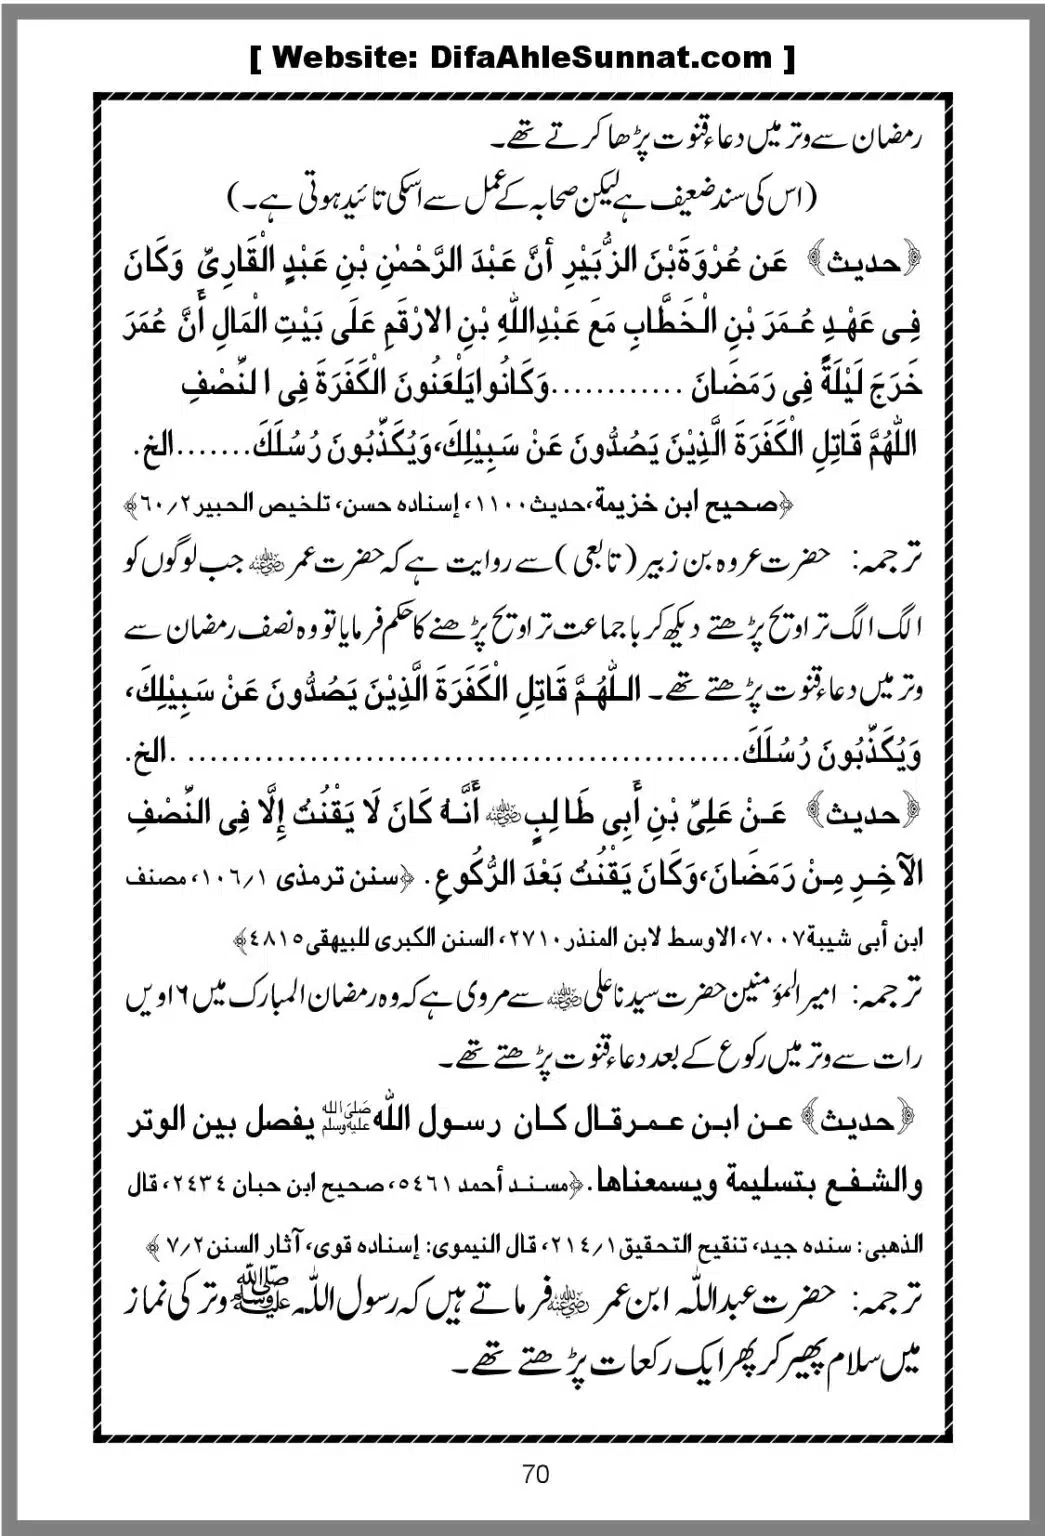 [ Website: DifaAhleSunnat.com ]
رمضان سے وتر میں دعاء قنوت پڑھا کرتے تھے۔
(اس کی سند ضعیف ہے لیکن صحابہ کے عمل سے اسکی تائید ہوتی ہے۔)
﴿حدیث﴾ عَن عُرْوَةَ بْنَ الزُّبَيْرِ أنَّ عَبْدَ الرَّحْمٰنِ بْنِ عَبْدٍ الْقَارِيِّ وَكَانَ
فِى عَهْدِ عُمَرَ بْنِ الْخَطَّابِ مَعَ عَبْدِاللّٰهِ بْنِ الارْقَمِ عَلَى بَيْتِ الْمَالِ أَنَّ عُمَرَ
خَرَجَ لَيْلَةً فِى رَمَضَانَ ............وَكَانُوا يَلْعَنُونَ الْكَفَرَةَ فِى النِّصْفِ
اللّٰهُمَّ قَاتِلِ الْكَفَرَةَ الَّذِيْنَ يَصُدُّونَ عَنْ سَبِيْلِكَ،وَيُكَذِّبُونَ رُسُلَكَ.......الخ.
﴿صحيح ابن خزيمة،حديث١١٠٠، إسناده حسن، تلخيص الحبير٦٠/٢﴾
ترجمہ: حضرت عروہ بن زبیر (تابعی) سے روایت ہے کہ حضرت عمر رضی اللہ عنہ جب لوگوں کو
الگ الگ تراویح پڑھتے دیکھ کر باجماعت تراویح پڑھنے کا حکم فرمایا تو وہ نصف رمضان سے
وتر میں دعاء قنوت پڑھتے تھے۔ اللّٰهُمَّ قَاتِلِ الْكَفَرَةَ الَّذِيْنَ يَصُدُّونَ عَنْ سَبِيْلِكَ،
وَيُكَذِّبُونَ رُسُلَكَ................................................ .الخ.
﴿حدیث﴾ عَنْ عَلِيِّ بْنِ أَبِى طَالِبٍ رضی اللہ عنہ أَنَّهُ كَانَ لَا يَقْنُتُ إِلَّا فِى النِّصْفِ
الآخِرِ مِنْ رَمَضَانَ،وَكَانَ يَقْنُتُ بَعْدَ الرُّكُوعِ. ﴿سنن ترمذى ١٠٦/١، مصنف
ابن أبى شيبة٧٠٠٧، الاوسط لابن المنذر٢٧١٠، السنن الكبرى للبيهقى٤٨١٥﴾
ترجمہ: امیر المؤمنین حضرت سیدنا علی رضی اللہ عنہ سے مروی ہے کہ وہ رمضان المبارک میں ۱۶ویں
رات سے وتر میں رکوع کے بعد دعاء قنوت پڑھتے تھے۔
﴿حديث﴾ عن ابن عمر قال كان رسول اللّٰه ﷺ يفصل بين الوتر
والشفع بتسليمة ويسمعناها. ﴿مسند أحمد ٥٤٦١، صحيح ابن حبان ٢٤٣٤، قال
الذهبى: سنده جيد، تنقيح التحقيق٢١٤/١، قال النيموى: إسناده قوى، آثار السنن٧/٢﴾
ترجمہ: حضرت عبداللہ ابن عمر رضی اللہ عنہ فرماتے ہیں کہ رسول اللہ ﷺ وتر کی نماز
میں سلام پھیر کر پھر ایک رکعات پڑھتے تھے۔
70